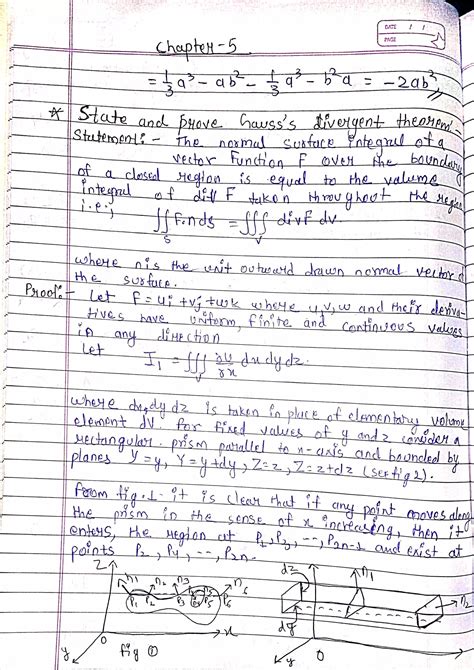 DATE / /
PAGE
Chapter-5
= 1/3 a³ - ab² - 1/3 a³ - b²a = -2ab²
* State and prove Gauss's divergent theorem:-
Statement:- The normal surface integral of a
vector function F over the boundary
of a closed region is equal to the volume
integral of div F taken throughout the region
i.e.;
∬_S F.n ds = ∭_V div F dv.
where n is the unit outward drawn normal vector of
the surface.
Proof:- Let F = ui + vj + wk where u, v, w and their deriva-
tives have uniform, finite and continuous values
in any direction
Let I₁ = ∭_V ∂u/∂x dx dy dz.
where dx, dy dz is taken in place of elementary volume
element dV for fixed values of y and z consider a
rectangular prism parallel to x-axis and bounded by
planes Y=y, Y=y+dy, Z=z, Z=z+dz (see fig 2).
From fig. 1 it is clear that if any point moves along
the prism in the sense of x increasing, then it
enters, the region at P₁, P₃, --, P₂n-1 and exist at
points P₂, P₄, --, P₂n.
Z n₁ n₂ n₃ n₆ dz n₁ n₂
P₁ P₂ P₃ P₄ P₅ P₆
x dy
y O fig ① y O